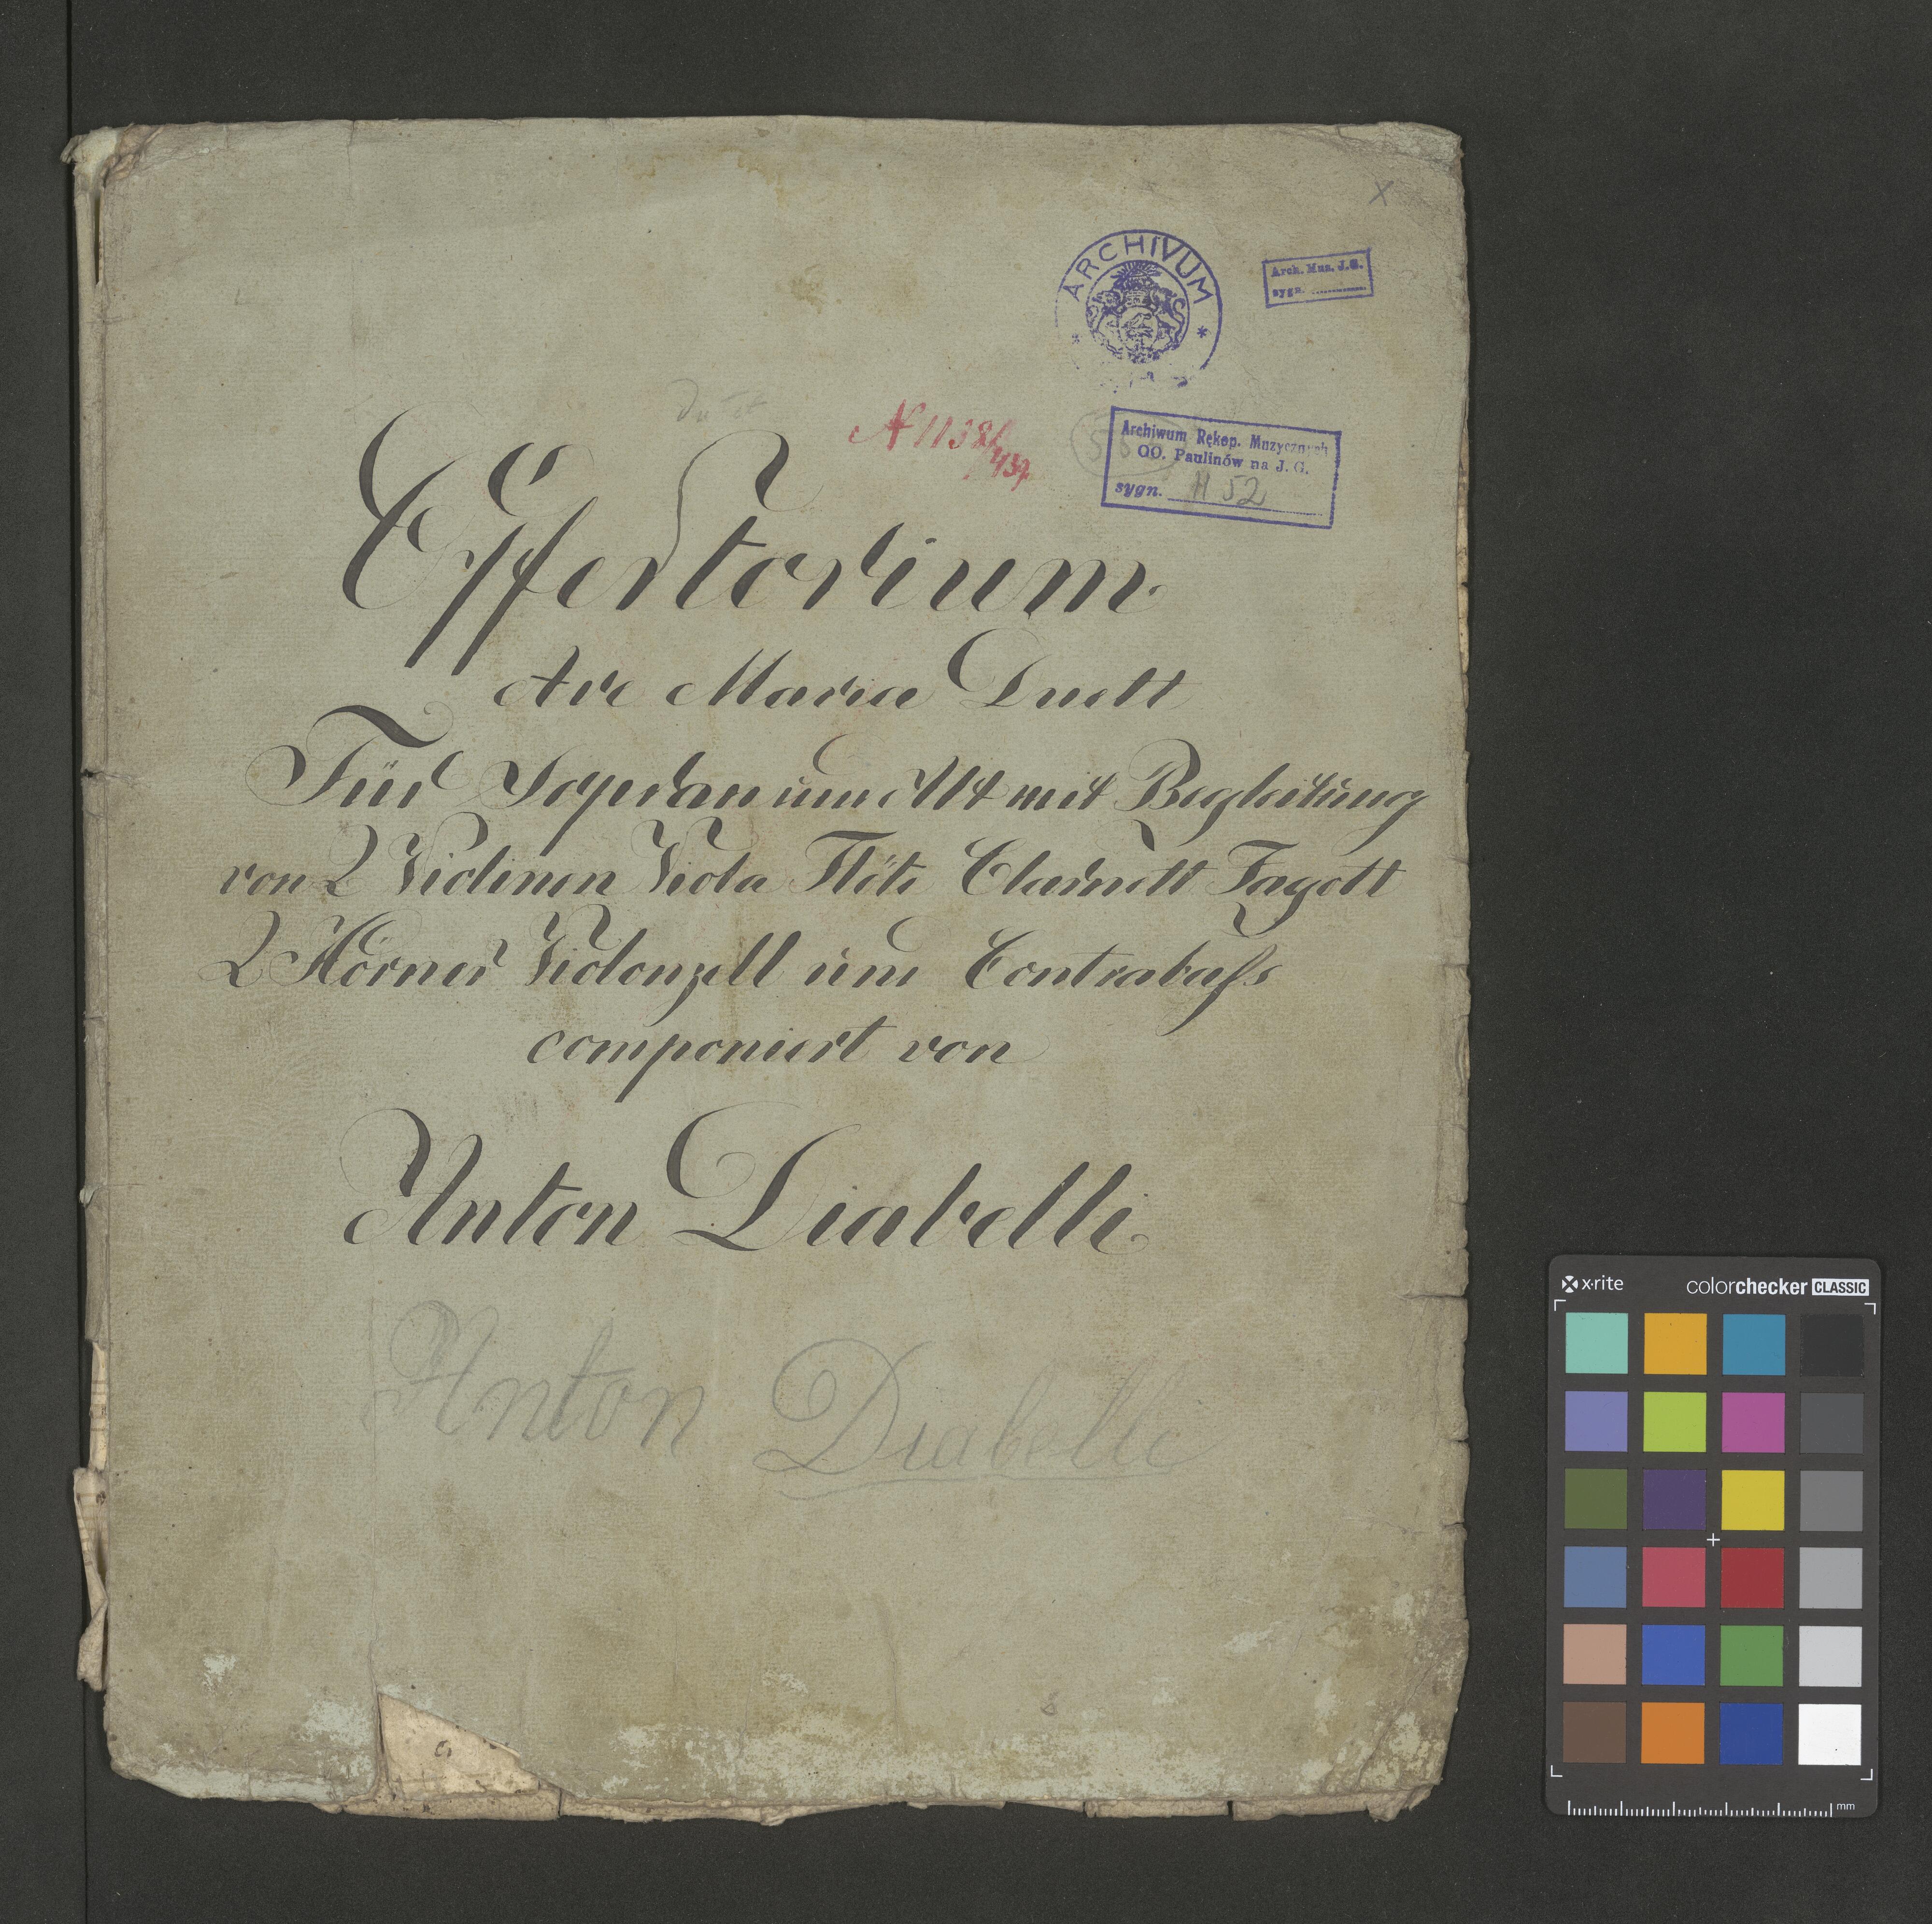 ARCHIVUM
Arch. Muz. J.G.
sygn.
Duett
N 1138/
439
Archiwum Rękop. Muzycznych
OO. Paulinów na J. G.
sygn. II 52
Offertorium
Ave Maria Duett
Für Sopran und Alt mit Begleitung
von 2 Violinen Viola Flöte Clarinett Fagott
2 Hörner Violonzell und Contrabaſs
componiert von
Anton Diabelli
Anton Diabelli
8
x-rite
colorchecker CLASSIC
mm